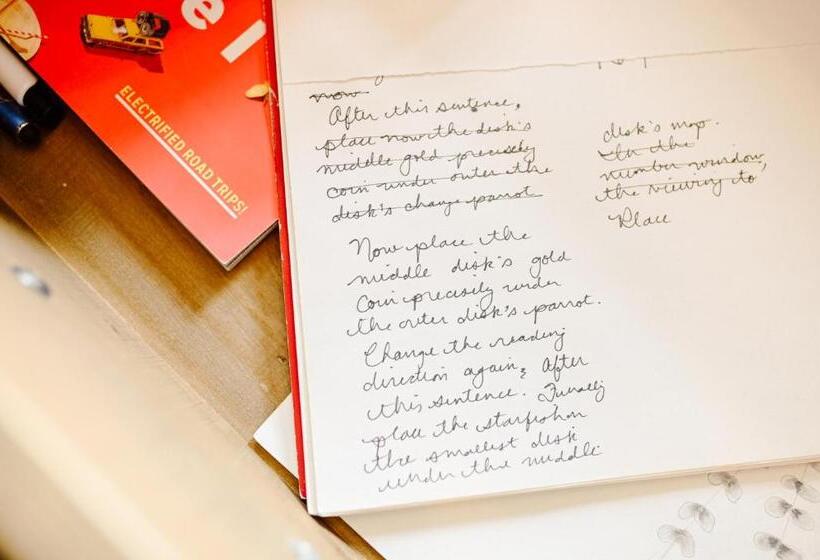 el
ELECTRIFIED ROAD TRIPS!
now
After this sentence,
place now the disk's
middle gold precisely
coin under outer the
disk's change parrot
Now place the
middle disk's gold
coin precisely under
the outer disk's parrot.
Change the reading
direction again; After
this sentence. Finally
place the starfish on
the smallest disk
under the middle
disk's map.
In the
number window,
the viewing to,
Place